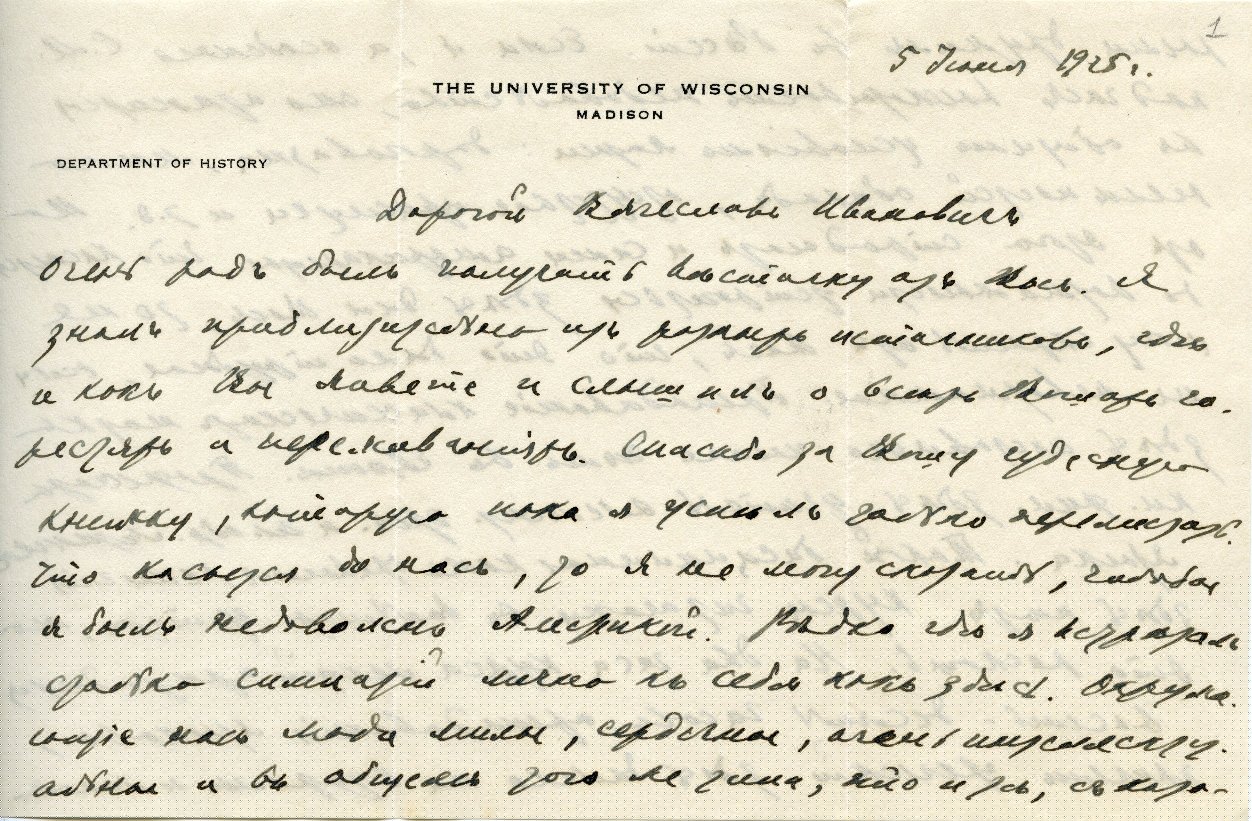 1
5 Июня 1925 г.
THE UNIVERSITY OF WISCONSIN
MADISON
DEPARTMENT OF HISTORY
Дорогой Вячеславъ Ивановичъ
Очень радъ былъ получить вѣсточку отъ Васъ. Я
зналъ приблизительно изъ разныхъ источниковъ, гдѣ
и какъ Вы живете и слышалъ о всѣхъ Вашихъ го-
рестяхъ и переживаніяхъ. Спасибо за Вашу чудесную
книжку, которую пока я успѣлъ только перелистать.
Что касается до насъ, то я не могу сказать, чтобы
я былъ недоволенъ Америкой. Рѣдко гдѣ я встрѣчалъ
столько симпатій лично къ себѣ какъ здѣсь. Окружа-
ющіе насъ люди милы, сердечны, очень
и въ общемъ того же типа, что и тѣ, съ кото-